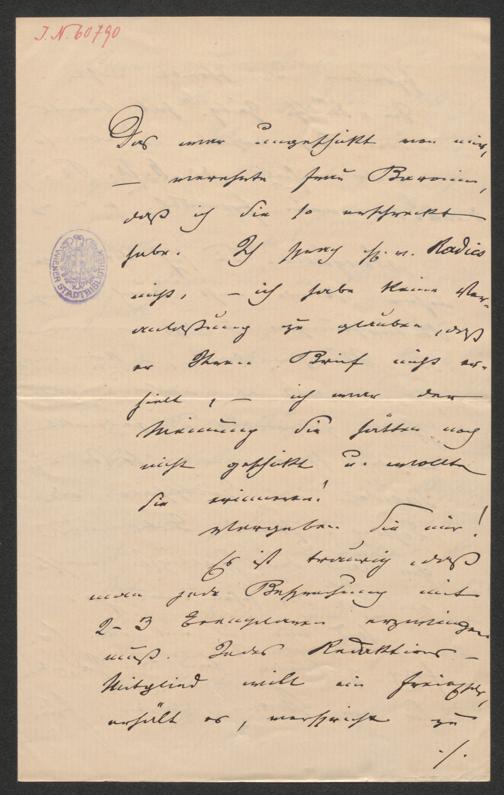 J.N. 60790
Das war ungeschikt von mir,
— verehrte Frau Baronin,
daß ich Sie so erschreckt
habe. Ich sprach H. v. Radics
nicht, — ich habe keine Ver-
anlaßung zu glauben, daß
er Ihren Brief nicht er-
hielt, — ich war der
Meinung Sie hätten noch
nicht geschikt u. wollte
Sie erinnern!
Vergeben Sie mir!
Es ist traurig daß
man jede Besprechung mit
2-3 Exemplaren erzwingen
muß. Jedes Redaktions-
Mitglied will ein Freiexpl,
erhält es, verspricht zu
./.
WIENER STADTBIBLIOTHEK